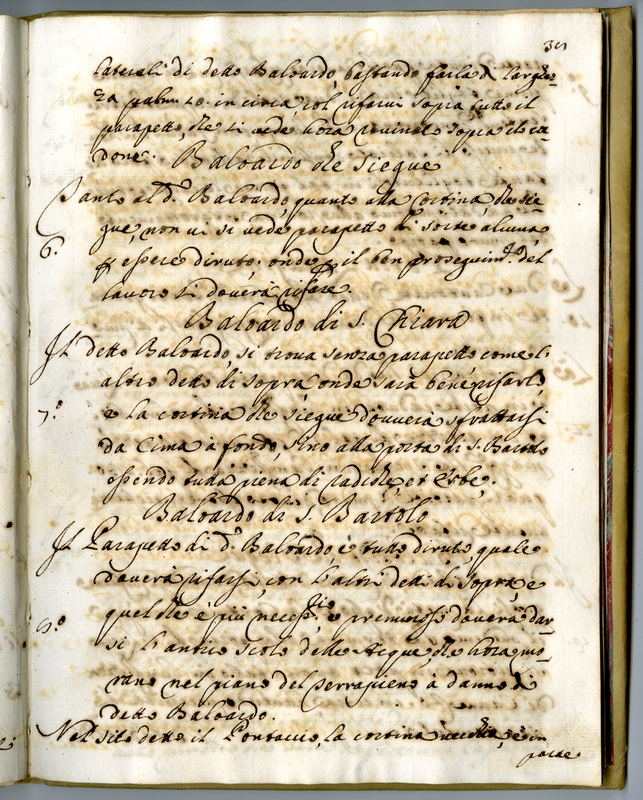 laterali di detto Baloardo, bastando farla di larghez-
za palmi 10. in circa, col rifarvi sopra tutto il
parapetto, che si vede hora rovinato sopra il co-
done.
Baloardo che siegue
Tanto al d.º Baloardo, quanto alla cortina, che sie-
gue, non vi si vede parapetto di sorte alcuna,
6.º
p essere diruto; onde p il ben proseguim.to del
lavoro si doverà rifare.
Baloardo di S. Chiara
Il detto Baloardo si trova senza parapetto come l'
altro detto di sopra onde sarà bene rifarlo,
7.º
e la cortina che siegue dovverà sfrattarsi
da Cima à fondo, sino alla porta di S. Bartolo
essendo tutta piena di radiche, et erbe,
Baloardo di S. Bartolo
Il Parapetto di d.º Baloardo è tutto diruto, quale
doverà rifarsi, con l'altri detti di sopra, e
quel che è più necess.rio e premuroso doverà dar-
8.º
si l'antico scolo delle Acque, che hora mo-
rano nel piano del Terrapieno à danno di
detto Baloardo.
Nel sito detto il Pontaccio, la cortina vecchia, è in
parte